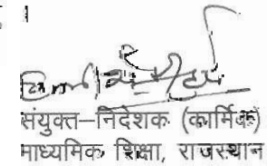 ।
संयुक्त–निदेशक (कार्मिक)
माध्यमिक शिक्षा, राजस्थान